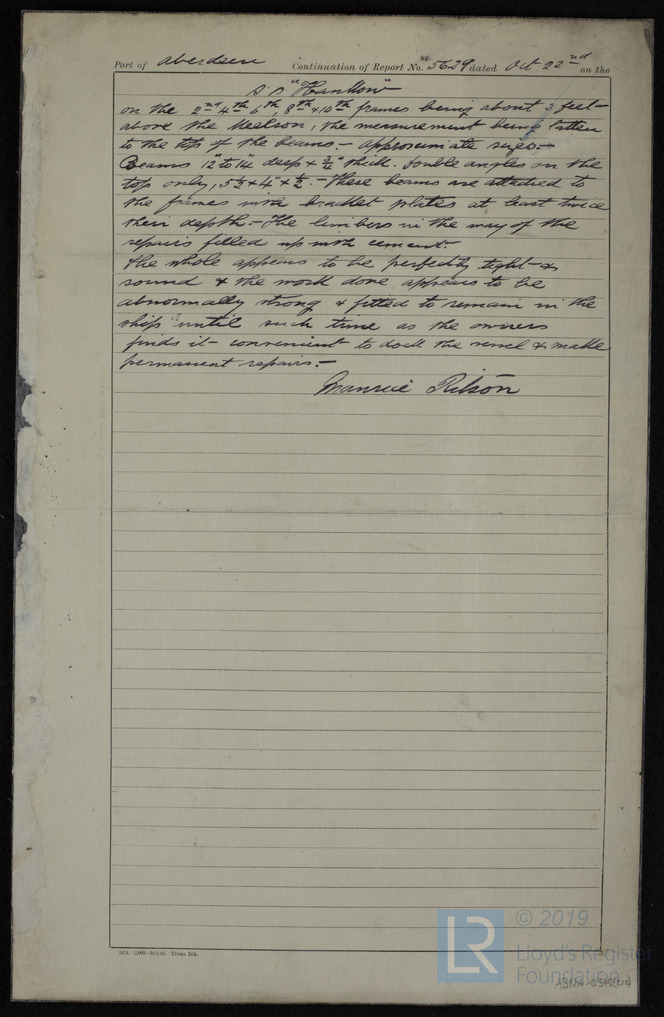 Port of Aberdeen Continuation of Report No. 5629 dated Oct 22nd on the
S.S "Hankow"
on the 2nd 4th 6th, 8th & 10th frames being about 3 feet
above the Keelson, the measurement being taken
to the top of the beams. - Approximate sizes. -
Beams 12" to 14" deep & 3/4" thick. Double angles on the
top only, 5 1/2 x 4" x 1/2. - These beams are attached to
the frames with bracket plates at least twice
their depth. - The limbers in the way of the
repairs filled up with cement. -
The whole appears to be perfectly tight &
sound & the work done appears to be
abnormally strong & fitted to remain in the
ship until such time as the owners
finds it convenient to dock the vessel & make
permanent repairs. -
Maurice Ritson
Trans. Ink.
© 2019
LR
Lloyd's Register
Foundation